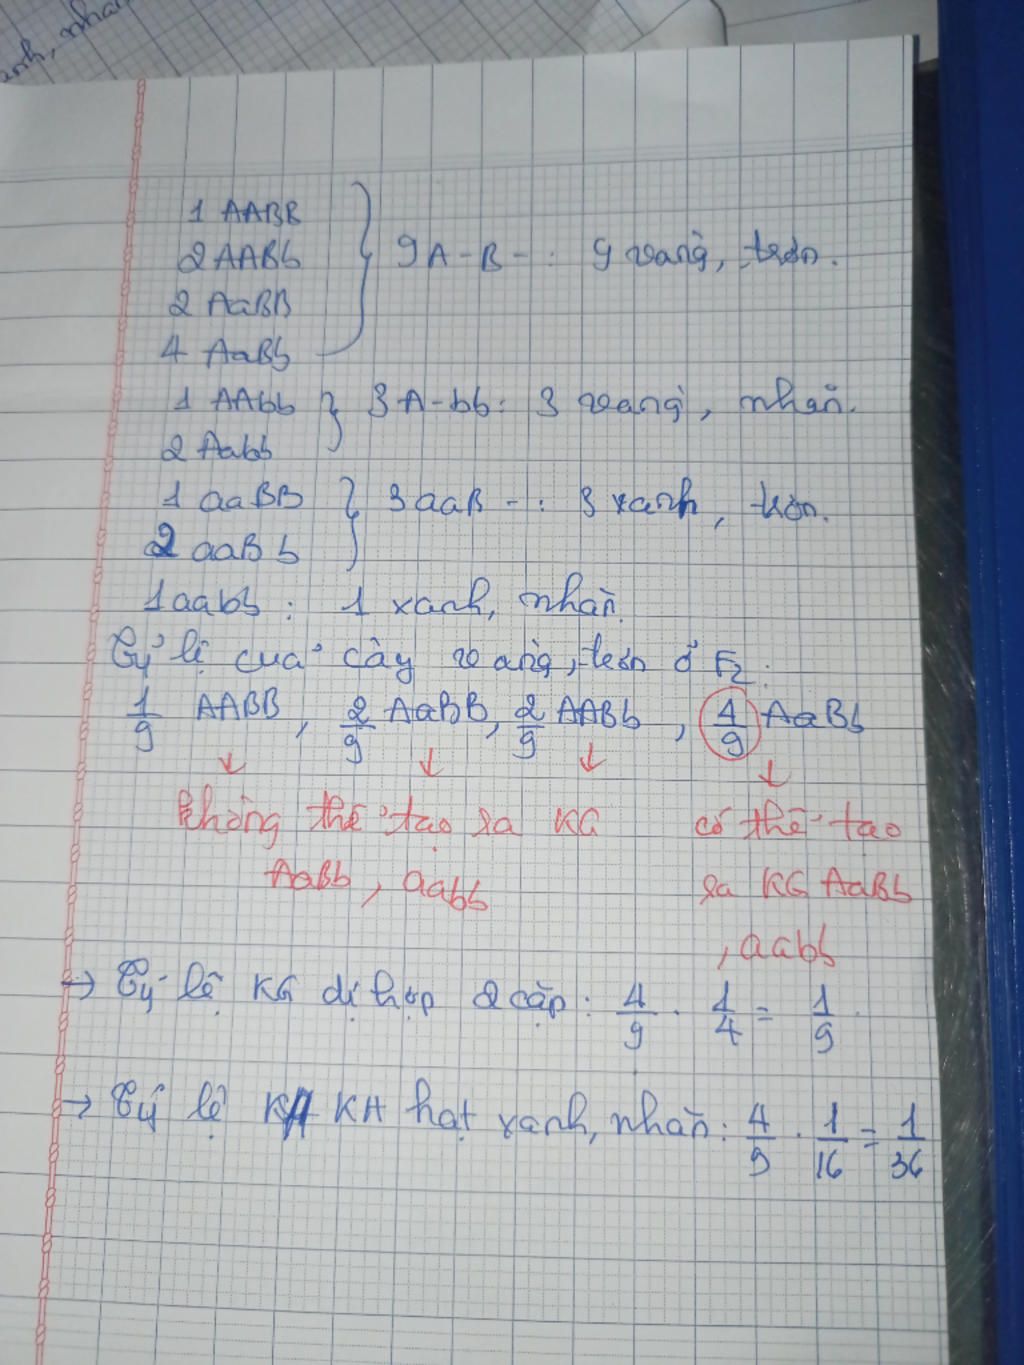 anh, nha
1 AABB
2 AABb } 9 A-B- : 9 vàng, trơn.
2 AaBB
4 AaBb
1 AAbb } 3 A-bb : 3 vàng, nhăn.
2 Aabb
1 aaBB } 3 aaB- : 3 xanh, trơn.
2 aaBb
1 aabb : 1 xanh, nhăn.
Tỷ lệ của cây vàng, trơn ở F2 :
1/9 AABB, 2/9 AaBB, 2/9 AABb, 4/9 AaBb
↓ ↓ ↓ ↓
không thể tạo ra KG có thể tạo
AaBb, aabb ra KG AaBb
, aabb
→ Tỷ lệ KG dị hợp 2 cặp : 4/9 . 1/4 = 1/9
→ Tỷ lệ KH hạt xanh, nhăn : 4/9 . 1/16 = 1/36